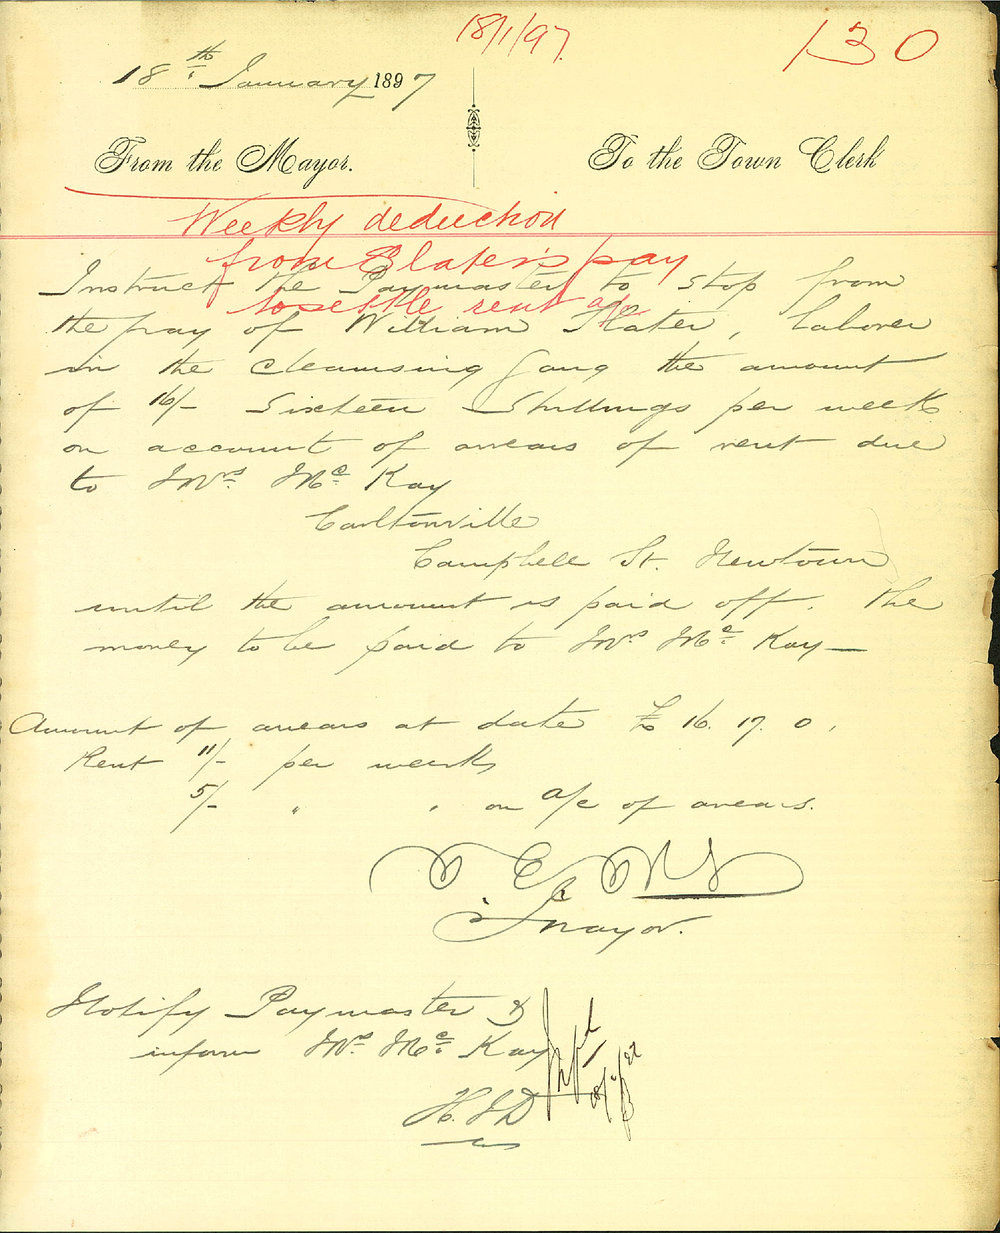 18/1/97.
130
18th January 1897
From the Mayor.
To the Town Clerk
Weekly deduction
from Slater's pay
to settle rent a/c
Instruct the Paymaster to stop from
the pay of William Slater, laborer
in the cleansing gang the amount
of 16/- Sixteen Shillings per week
on account of arrears of rent due
to Mrs. McKay
Carltonville
Campbell St. Newtown
until the amount is paid off. The
money to be paid to Mrs McKay—
Amount of arrears at date £16.17.0.
Rent 11/- per week
5/- " " on a/c of arrears.
Mayor.
Notify Paymaster &
inform Mrs. McKay
H.G.D